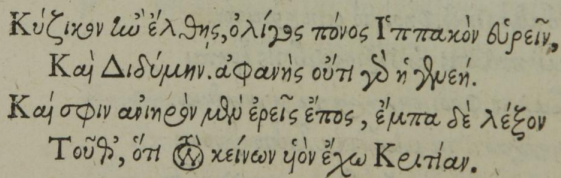 Κύζικον ἢν ἔλθης, ὀλίγος πόνος Ἱππακὸν εὑρεῖν,
Καὶ Διδύμην. ἀφανὴς οὔτι γὰρ ἡ γενεή.
Καί σφιν ἀνιηρὸν μὲν ἐρεῖς ἔπος, ἔμπα δὲ λέξον
Τοῦθ', ὅτι κείνων υἱὸν ἔχω Κριτίαν.